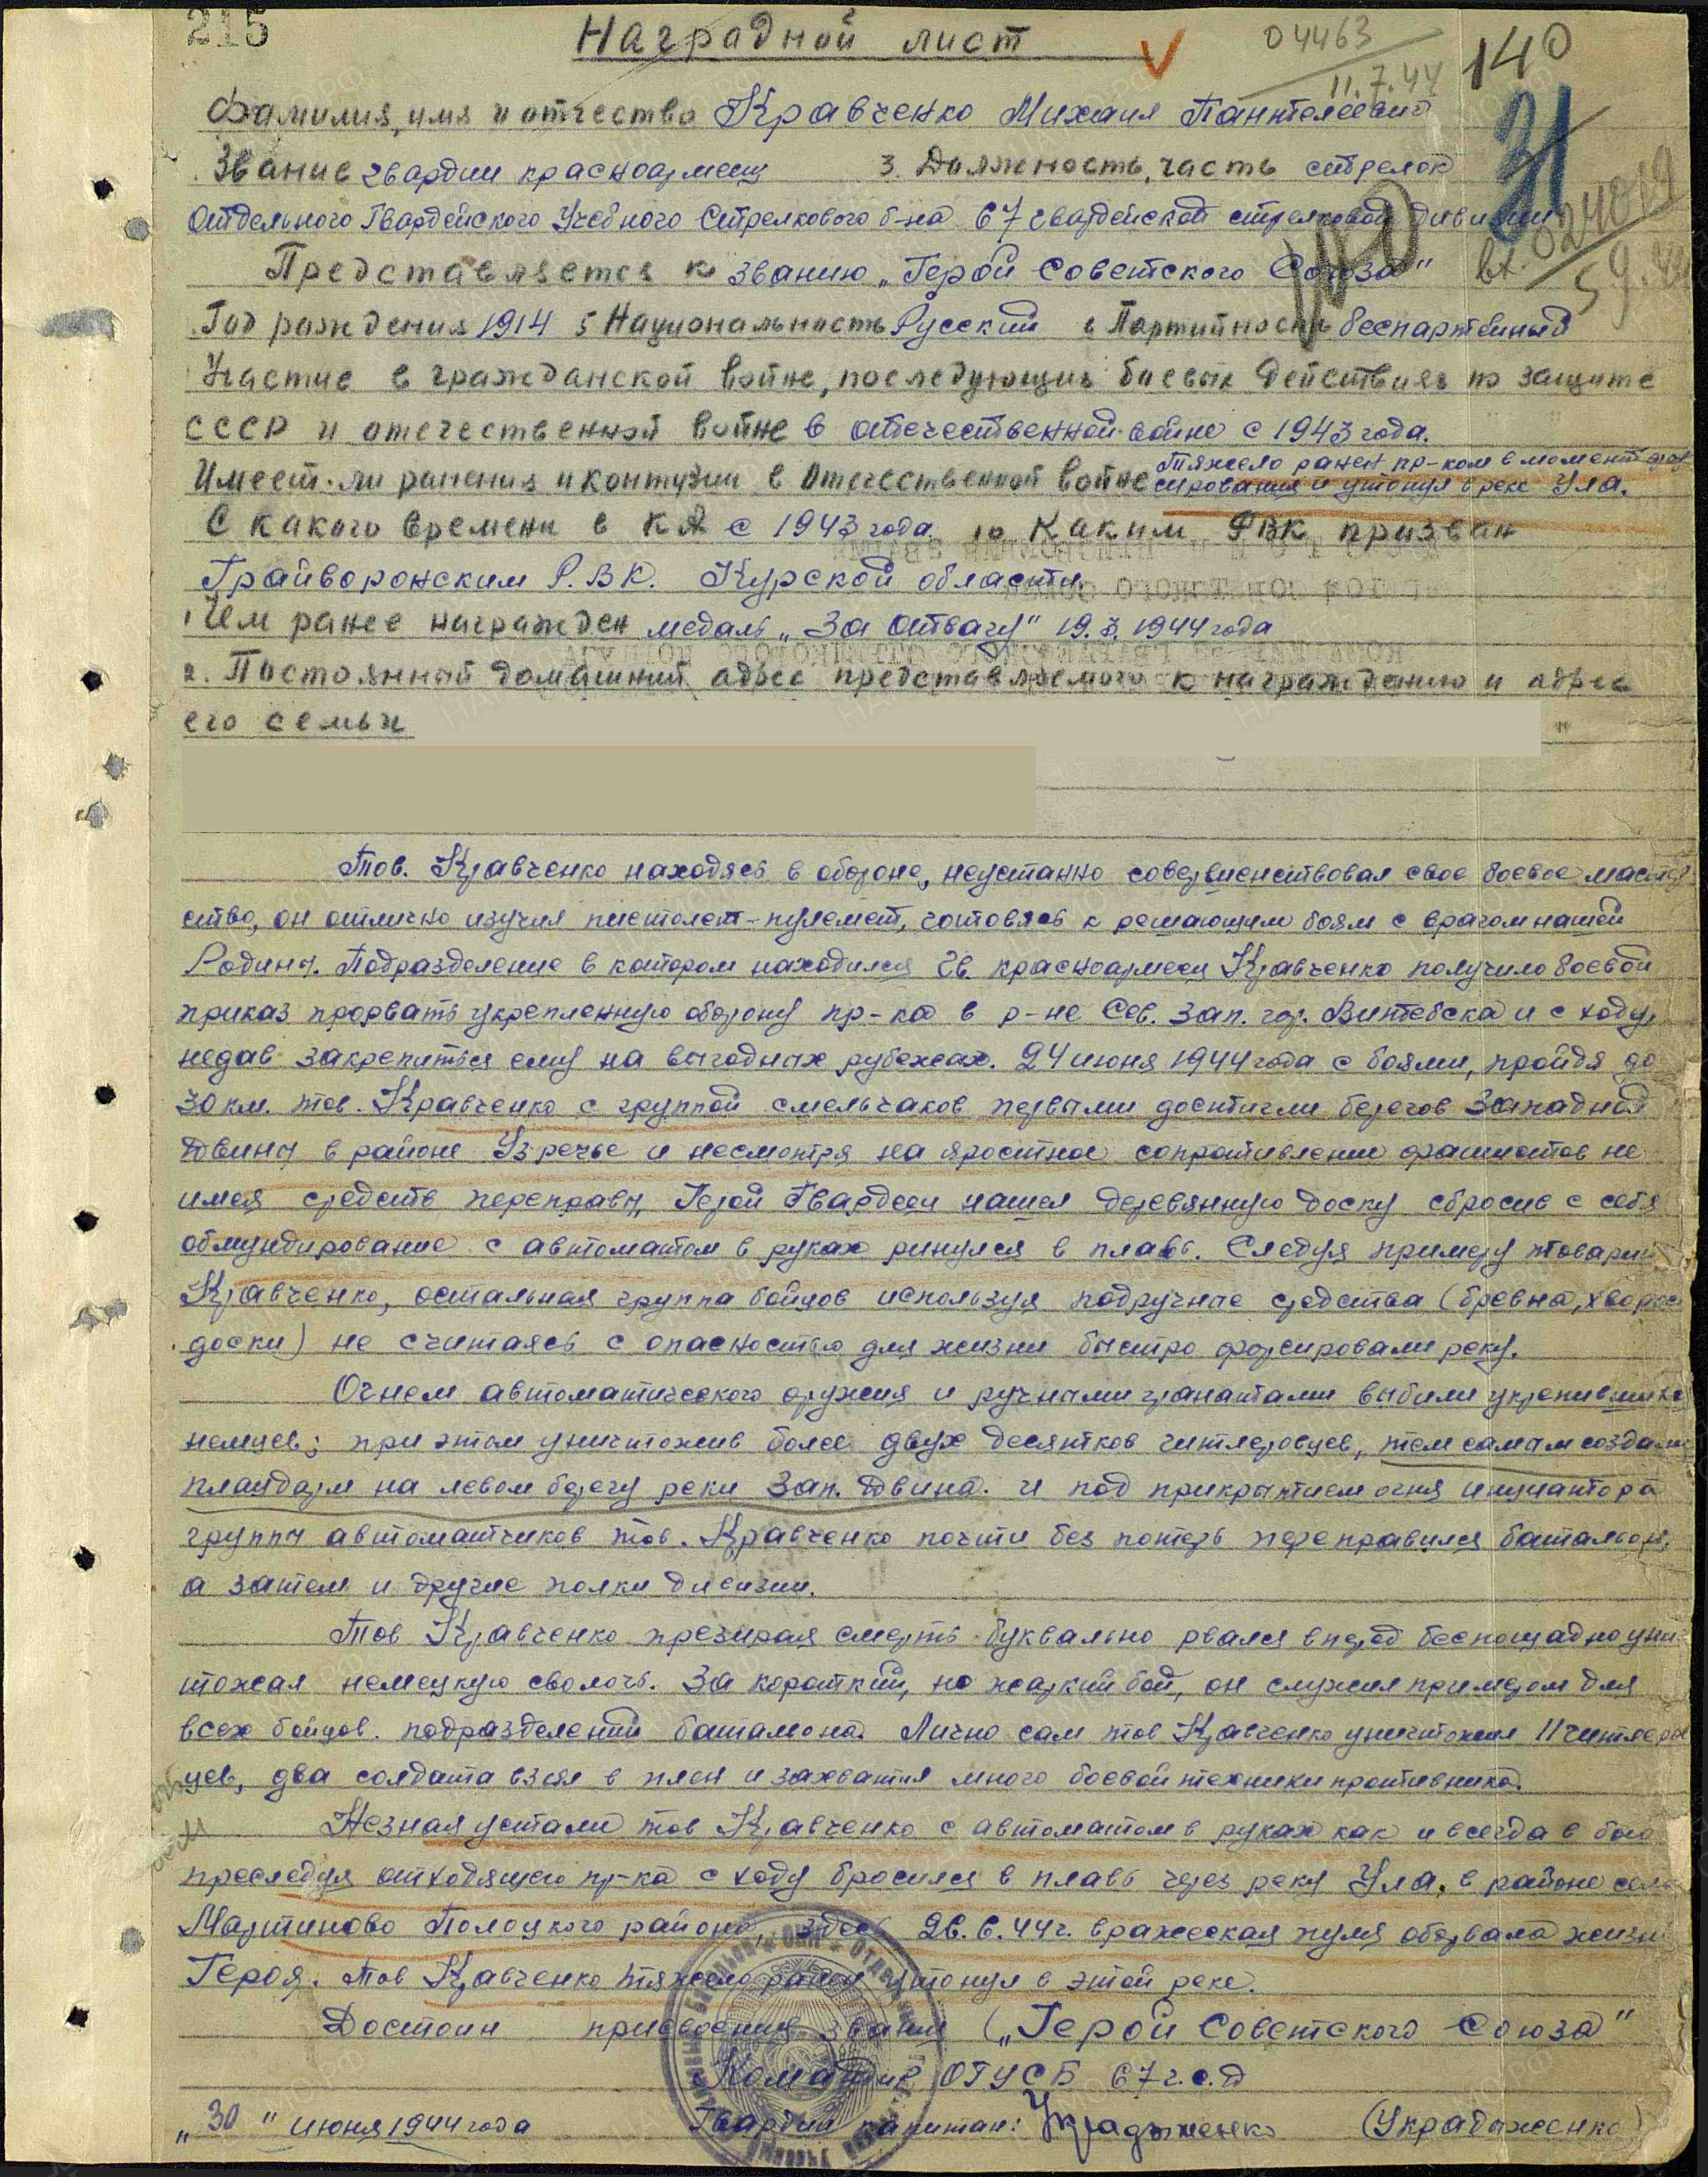 215
Наградной лист
04463
11.7.44
140
31
Фамилия, имя и отчество Кравченко Михаил Пантелеевич
Звание гвардии красноармеец 3. Должность, часть стрелок
Отдельного Гвардейского Учебного Стрелкового б-на 67 гвардейской стрелковой дивизии
вх. 024019
Представляется к званию „Герой Советского Союза"
Год рождения 1914 5 Национальность Русский 6 Партийность беспартейный
Участие в гражданской войне, последующих боевых действиях по защите
СССР и отечественной войне в отечественной войне с 1943 года.
Имеет-ли ранения и контузии в Отечественной войне Тяжело ранен пр-ком в момент фор
сирования и утонул в реке Ула.
С какого времени в КА с 1943 года. 10 Каким РВК призван
Грайворонским Р.В.К. Курской области.
Чем ранее награжден медаль „За отвагу" 19.3.1944 года
2. Постоянный домашний адрес представляемого к награждению и адрес
его семьи
Тов. Кравченко находясь в обороне, неустанно совервиенствовал свое боевое мастер
ство, он отлично изучил пистолет-пулемет, готовясь к решающим боям с врагом нашей
Родины. Подразделение в котором находился гв. красноармеец Кравченко получило боевой
приказ прорвать укрепленную оборону пр-ка в р-не Сев. Зап. гор. Витебска и с ходу,
недав закрепиться ему на выгодных рубежах. 24 июня 1944 года с боями, пройдя до
30 км. тов. Кравченко с группой смельчаков первыми достигли берегов Западной
Двины в районе Узречье и несмотря на яростное сопротивление фашистов не
имея средств переправы, Герой Гвардеец нашел деревянную доску сбросив с себя
обмундирование с автоматом в руках ринулся в плавь. Следуя примеру товарища
Кравченко, остальная группа бойцов используя подручные средства (бревна, хворост
доски) не считаясь с опасностью для жизни быстро форсировали реку.
Огнем автоматического оружия и ручными гранатами выбили укрепившихся
немцев; при этом уничтожив более двух десятков гитлеровцев, тем самым создали
плацдарм на левом берегу реки Зап. Двина. и под прикрытием огня инициатора
группы автоматчиков тов. Кравченко почти без потерь переправился батальон,
а затем и другие полки дивизии.
Тов Кравченко презирая смерть буквально рвался вперед беспощадно уни-
тожая немецкую сволочь. За короткий, но жаркий бой, он служил примером для
всех бойцов. подразделений батальона. Лично сам тов Кравченко уничтожил 11 гитлеров
цев, два солдата взял в плен и захватил много боевой техники противника.
Незная устали тов Кравченко с автоматом в руках как и всегда в бою
преследуя отходящего пр-ка с ходу бросился в плавь через реку Ула, в районе села
Мартиново Полоцкого района, здесь 26.6.44г. вражеская пуля оборвала жизнь
Героя. Тов Кравченко тяжело ранен утонул в этой реке.
Достоин присвоения звания („Герой Советского Союза"
Командир ОГУСБ 67 г.с.д
„30" июня 1944 года Гвардии капитан: Украдыженко (Украдыженко)